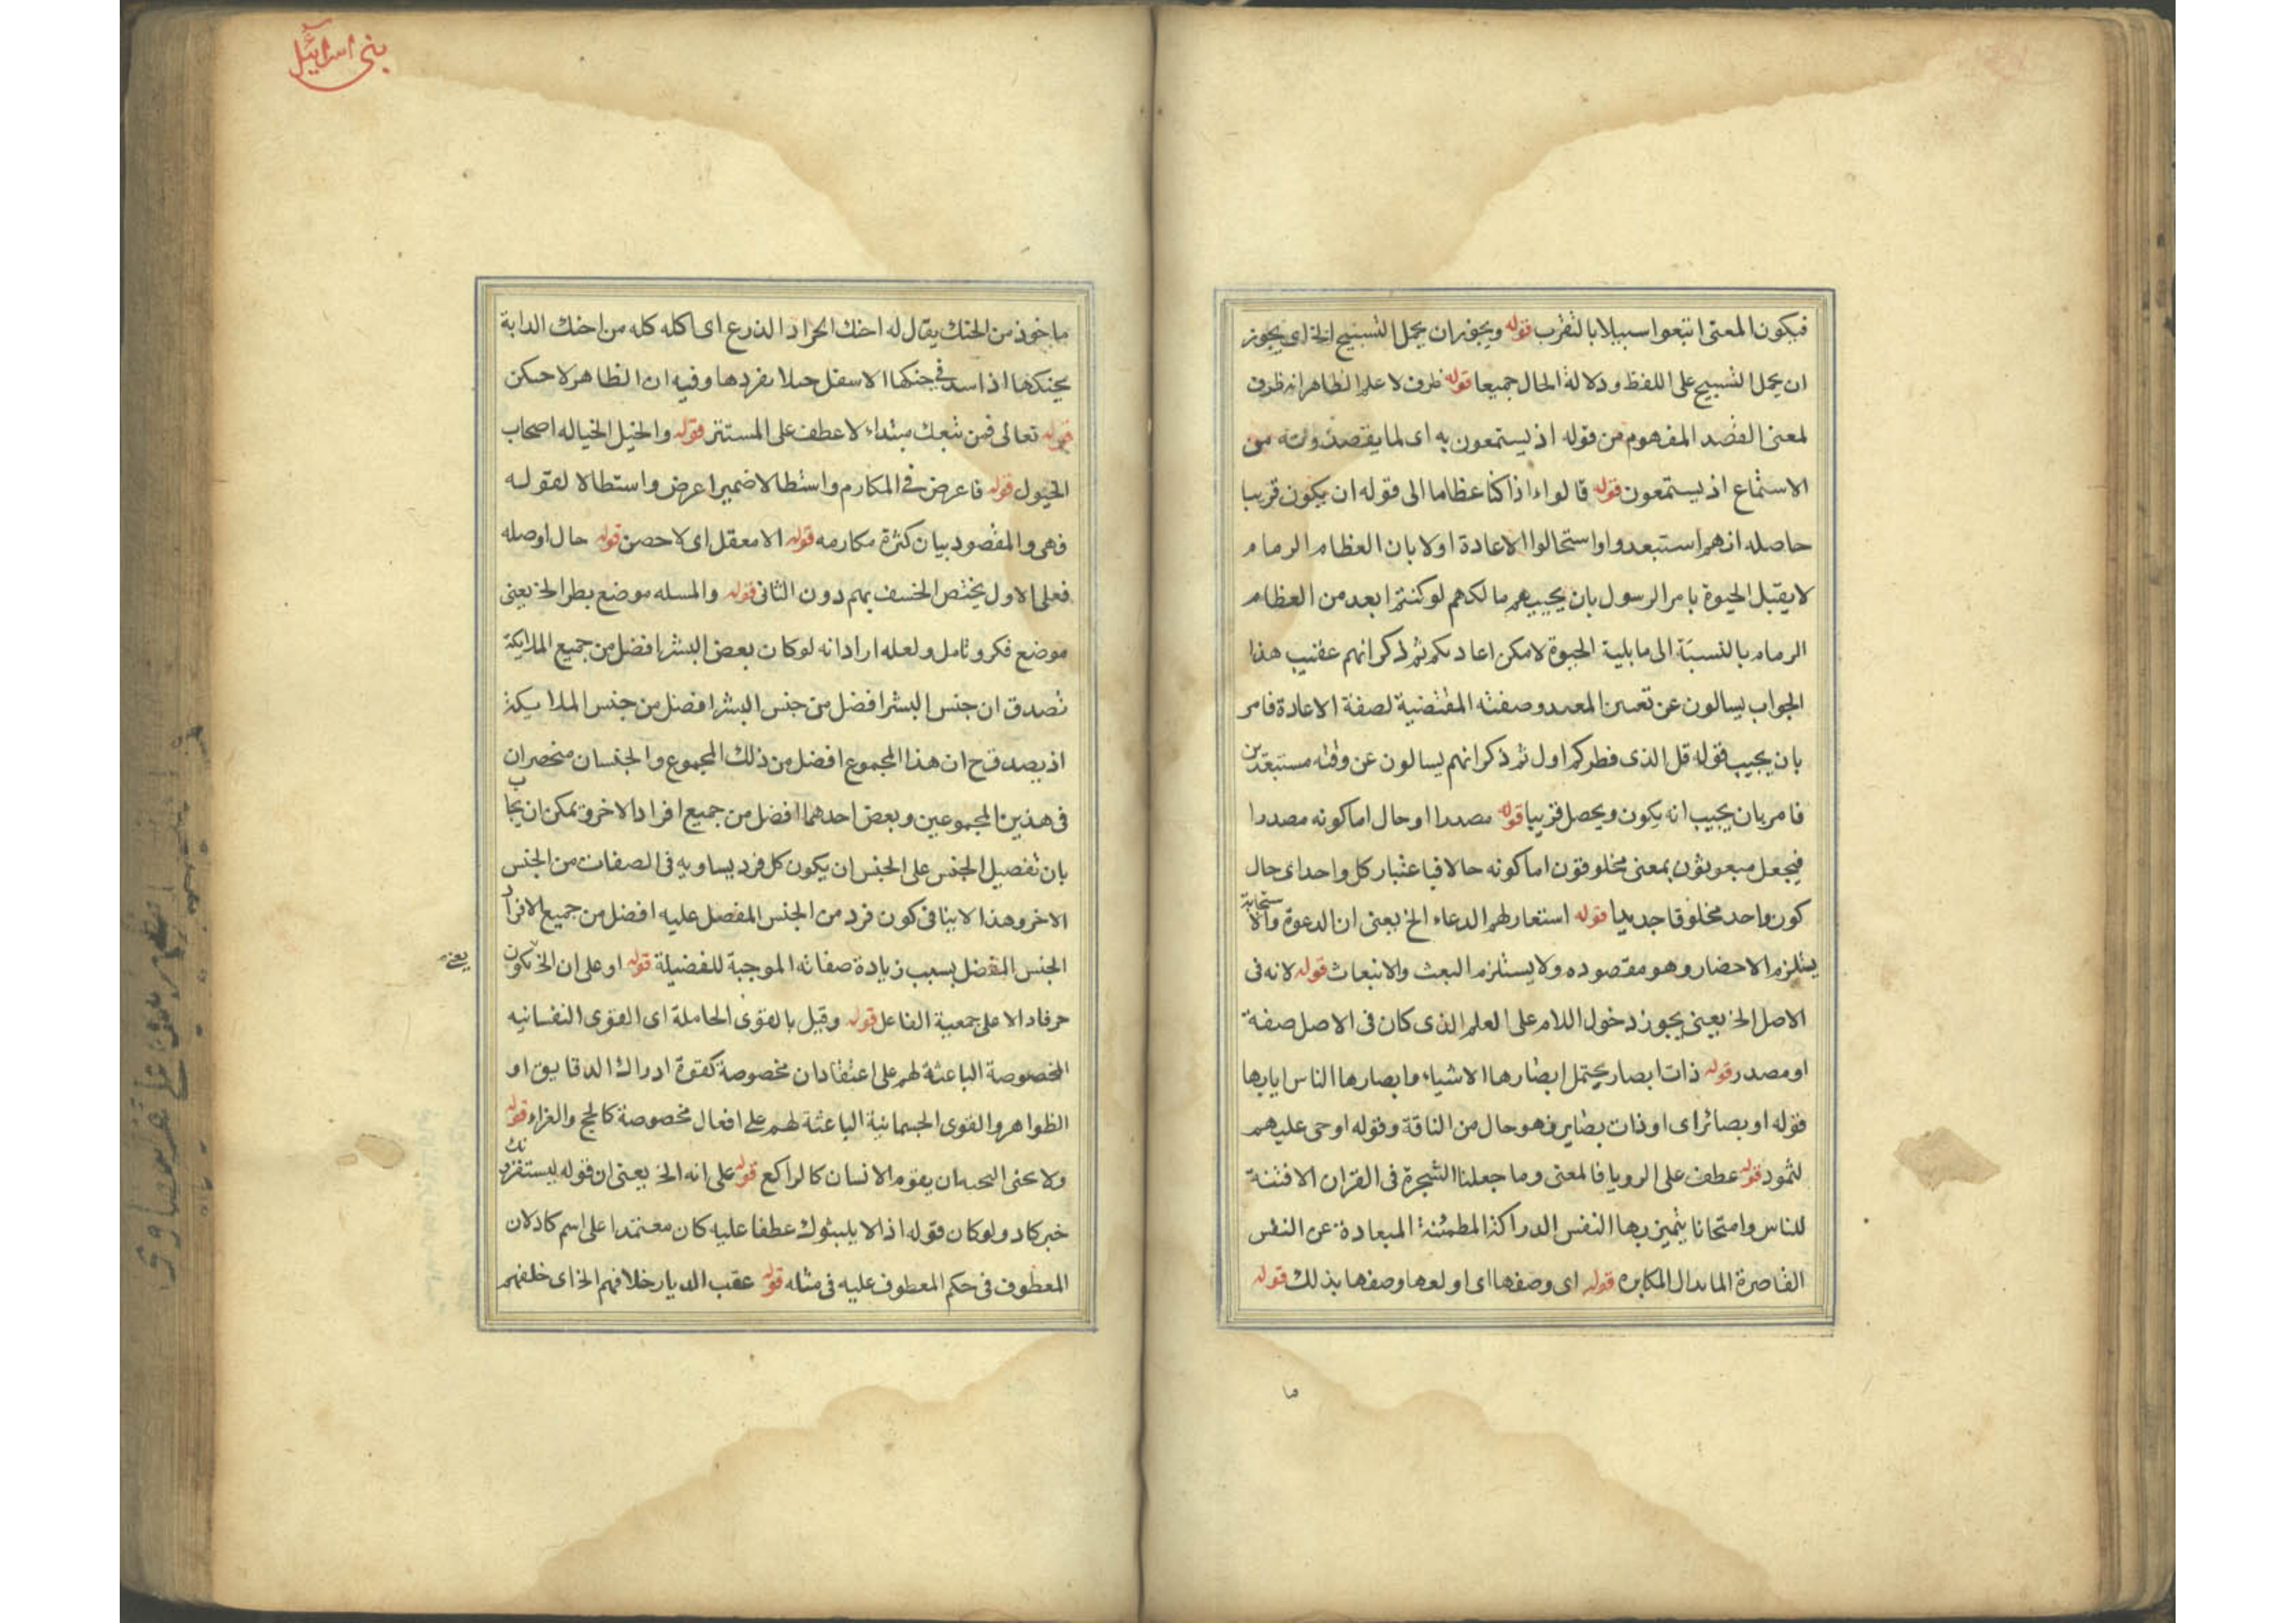 فيكون المعنى ابتغوا سبيلا بالتقرب قوله ويجوز ان يحمل التسبيح الخ اى يجوز
ان يحمل التسبيح على اللفظ ودلالة الحال جميعا قوله ظرف لا علم الظاهر انه ظرف
لمعنى القصد المفهوم من قوله اذ يستمعون به اى لما يقصدونه من
الاستماع اذ يستمعون قوله قالوا ءاذا كنا عظاما الى قوله ان يكون قريبا
حاصله انهم استبعدوا واستحالوا الاعادة اولا بان العظام الرمام
لا يقبل الحيوة بامر الرسول بان يجيبهم ما لكم لو كنتم ابعد من العظام
الرمام بالنسبة الى مابلية الحيوة لامكن اعادتكم ثم ذكر انهم عقيب هذا
الجواب يسالون عن تعيين المعيد وصفته المقتضية لصفة الاعادة فامر
بان يجيب قوله قل الذى فطركم اول ثم ذكر انهم يسالون عن وقته مستبعدين
فامر بان يجيب انه يكون ويحصل قريبا قوله مصدرا او حال اما كونه مصدرا
فيجعل مبعوثون بمعنى مخلوقون اما كونه حالا فباعتبار كل واحد اى حال
كون واحد مخلوقا جديدا قوله استعار لهم الدعاء الخ يعنى ان الدعوة والاستجابة
يستلزم الاحضار وهو مقصوده ولا يستلزم البعث والانبعاث قوله لانه فى
الاصل الخ يعنى يجوز دخول اللام على العلم الذى كان فى الاصل صفة
او مصدر قوله ذات ابصار يحتمل ابصارها الاشياء وابصارها الناس اياها
قوله او بصائر اى او ذات بصاير فهو حال من الناقة وقوله اوحى عليهم
لثمود قوله عطف على الرويا فالمعنى وما جعلنا الشجرة فى القران الا فتنة
للناس وامتحانا يتميز بها النفس الدراكة المطمئنة المبعادة عن النفس
القاصرة المكابره قوله اى وصفها اى او لعها وصفها بذلك قوله
ما
بنى اسرائيل
ماخوذ من الحنك يقال له احنك الجراد الذرع اى اكله كله من احنك الدابة
يحنكها اذا سد فى حنكها الاسفل حبلا يفردها وفيه ان الظاهر لاحنكن
قوله تعالى فمن تبعك مبتداء لا عطف على المستتر قوله والخيل الخيالة اصحاب
الخيول قوله فاعرض فى المكارم واستطالا ضميرا عرض واستطالا لقوله
فهى والمقصود بيان كثرة مكارمه قوله الا معقل اى لا حصن قوله حال او صله
فعلى الاول يختص الخسف بهم دون الثانى قوله والمسله موضع بطر الخ يعنى
موضع فكر وتامل ولعله اراد انه لو كان بعض البشر افضل من جميع الملايكة
تصدق ان جنس البشر افضل من جنس البشر افضل من جنس الملايكة
اذ يصدق ح ان هذا المجموع افضل من ذلك المجموع والجنسان منحصران
فى هذين المجموعين وبعض احدهما افضل من جميع افراد الاخر ويمكن ان يجاب
بان تفصيل الجنس على الجنس ان يكون كل فرد يساويه فى الصفات من الجنس
الاخر وهذا لا ينافى كون فرد من الجنس المفصل عليه افضل من جميع الافراد
الجنس المفضل بسبب زيادة صفاته الموجبة للفضيلة قوله او على ان الخ يكون
يعنى
حرفا دالا على جمعية الفاعل قوله وقيل بالقوى الحاملة اى القوى النفسانيه
المخصوصة الباعثة لهم على اعتقادات مخصوصة كقوة ادراك الدقايق او
الظواهر والقوى الجسمانية الباعثة لهم على افعال مخصوصة كالحج والغزاء قوله
ولا يخفى ان يقوم الانسان كالراكع قوله على انه الخ يعنى ان قوله ليستفزونك
خبر كاد ولو كان قوله اذا لا يلبثوك عطفا عليه كان معتمدا على اسم كاد لان
المعطوف فى حكم المعطوف عليه فى مثله قوله عقب الديار خلافهم الخ اى خلفهم